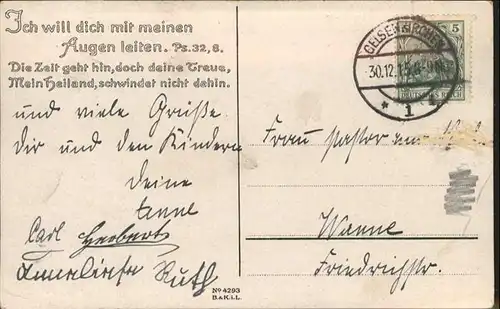 Ich will dich mit meinen
Augen leiten. Ps. 32, 8.
Die Zeit geht hin, doch deine Treue,
Mein Heiland, schwindet nicht dahin.
und viele Grüße
Dir und den Kindern
Deine
Anne
Carl Herbert
Anneliese Ruth
No 4293
B.&K.i.L.
GELSENKIRCHEN
30.12.
* 1
5
DEUTSCHES REICH
Frau Pastor
Wanne
Friedrichstr.